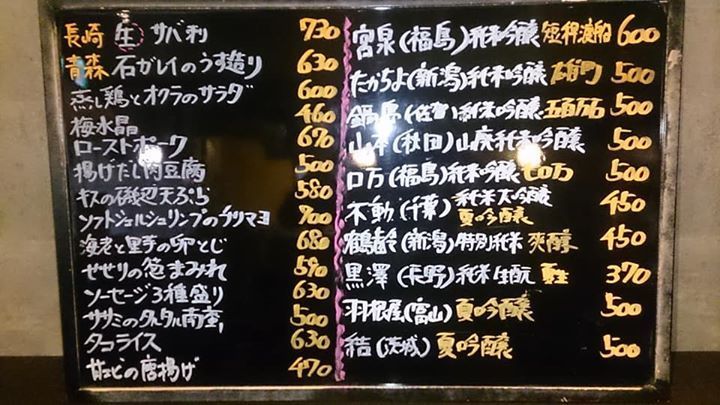 長崎 生 サバ刺 730
青森 石ガレイのうす造り 630
蒸し鶏とオクラのサラダ 600
梅水晶 460
ローストポーク 670
揚げだし肉豆腐 500
キスの磯辺天ぷら 580
ソフトシェルシュリンプのチリマヨ 700
海老と里芋の卵とじ 680
せせりの葱まみれ 590
ソーセージ3種盛り 630
ササミのタルタル南蛮 500
タコライス 630
甘エビの唐揚げ 470
宮泉(福島)純米吟醸 短稈渡船 600
たかちよ(新潟)純米吟醸 雄町 500
鍋島(佐賀)純米吟醸 五百万石 500
山本(秋田)山廃純米吟醸 500
ロ万(福島)純米吟醸 七ロ万 500
不動(千葉)純米大吟醸 夏吟醸 450
鶴齢(新潟)特別純米 爽醇 450
黒澤(長野)純米生酛 夏生 370
羽根屋(富山)夏吟醸 500
結(茨城)夏吟醸 500